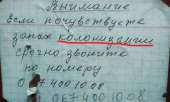 Внимание
если почувствуете
запах колонизации
срочно звоните
по номеру
0 67 400 10 08
067 400 10 08